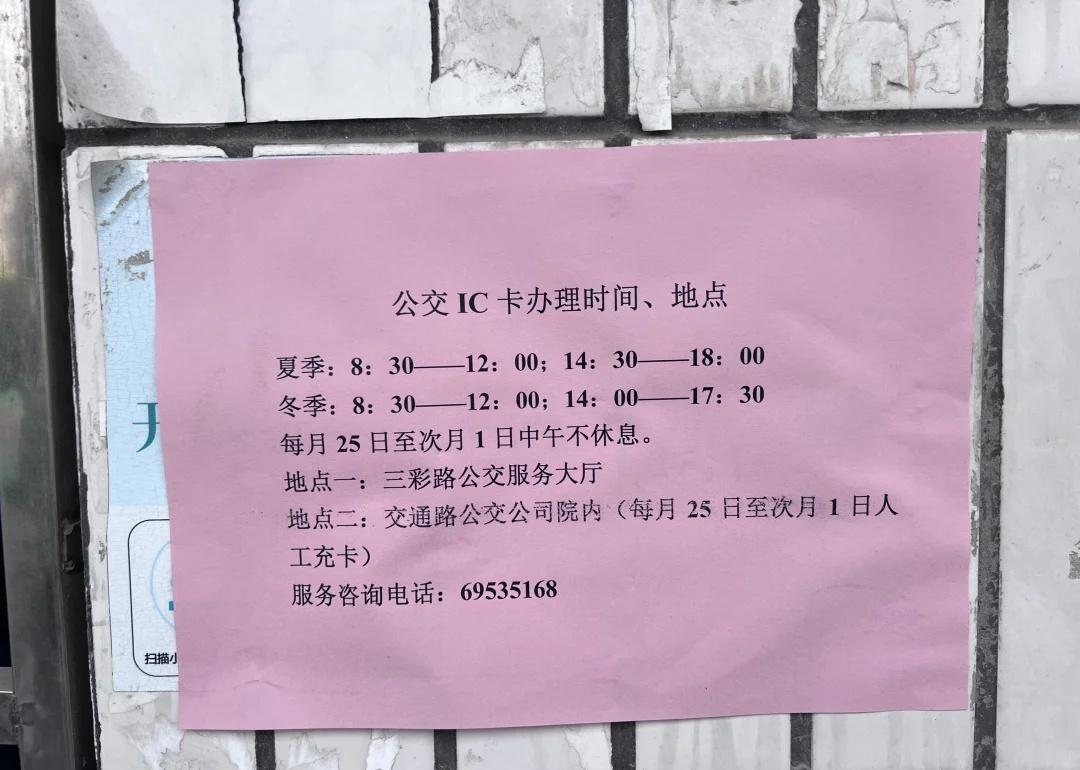 公交 IC 卡办理时间、地点
夏季：8：30——12：00；14：30——18：00
冬季：8：30——12：00；14：00——17：30
每月 25 日至次月 1 日中午不休息。
地点一：三彩路公交服务大厅
地点二：交通路公交公司院内（每月 25 日至次月 1 日人
工充卡）
服务咨询电话：69535168
扫描小